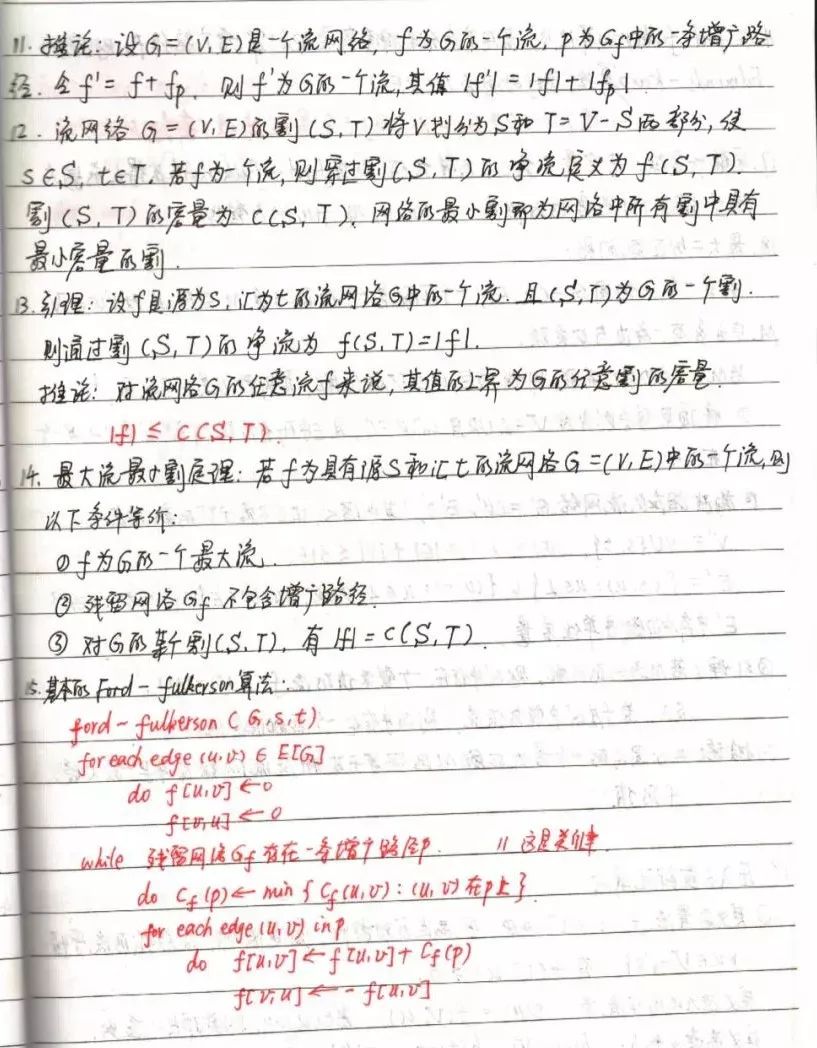 11. 推论: 设G=(V,E)是一个流网络, f为G的一个流, p为Gf中的一条增广路
径. 令 f' = f + fp. 则f'为G的一个流, 其值 |f'| = |f| + |fp|
12. 流网络 G=(V,E)的割(S,T)将V划分为S和T=V-S两部分, 使
s∈S, t∈T. 若f为一个流, 则穿过割(S,T)的净流定义为f(S,T).
割(S,T)的容量为 C(S,T). 网络的最小割即为网络中所有割中具有
最小容量的割.
13. 引理: 设f是源为S, 汇为t的流网络G中的一个流. 且(S,T)为G的一个割.
则通过割(S,T)的净流为 f(S,T)=|f|.
推论: 对流网络G的任意流f来说, 其值的上界为G的任意割的容量.
|f| ≤ C(S,T).
14. 最大流最小割定理: 若f为具有源S和汇t的流网络G=(V,E)中的一个流, 则
以下条件等价:
① f为G的一个最大流.
② 残留网络Gf不包含增广路径.
③ 对G的某个割(S,T), 有 |f| = C(S,T).
15. 基本的Ford-fulkerson算法:
ford-fulkerson (G,s,t)
for each edge (u,v) ∈ E[G]
do f[u,v] ← 0
f[v,u] ← 0
while 残留网络Gf存在一条增广路径p. // 这是关键
do Cf(p) ← min { Cf(u,v) : (u,v) 在p上 }
for each edge (u,v) in p
do f[u,v] ← f[u,v] + Cf(p)
f[v,u] ← - f[u,v]